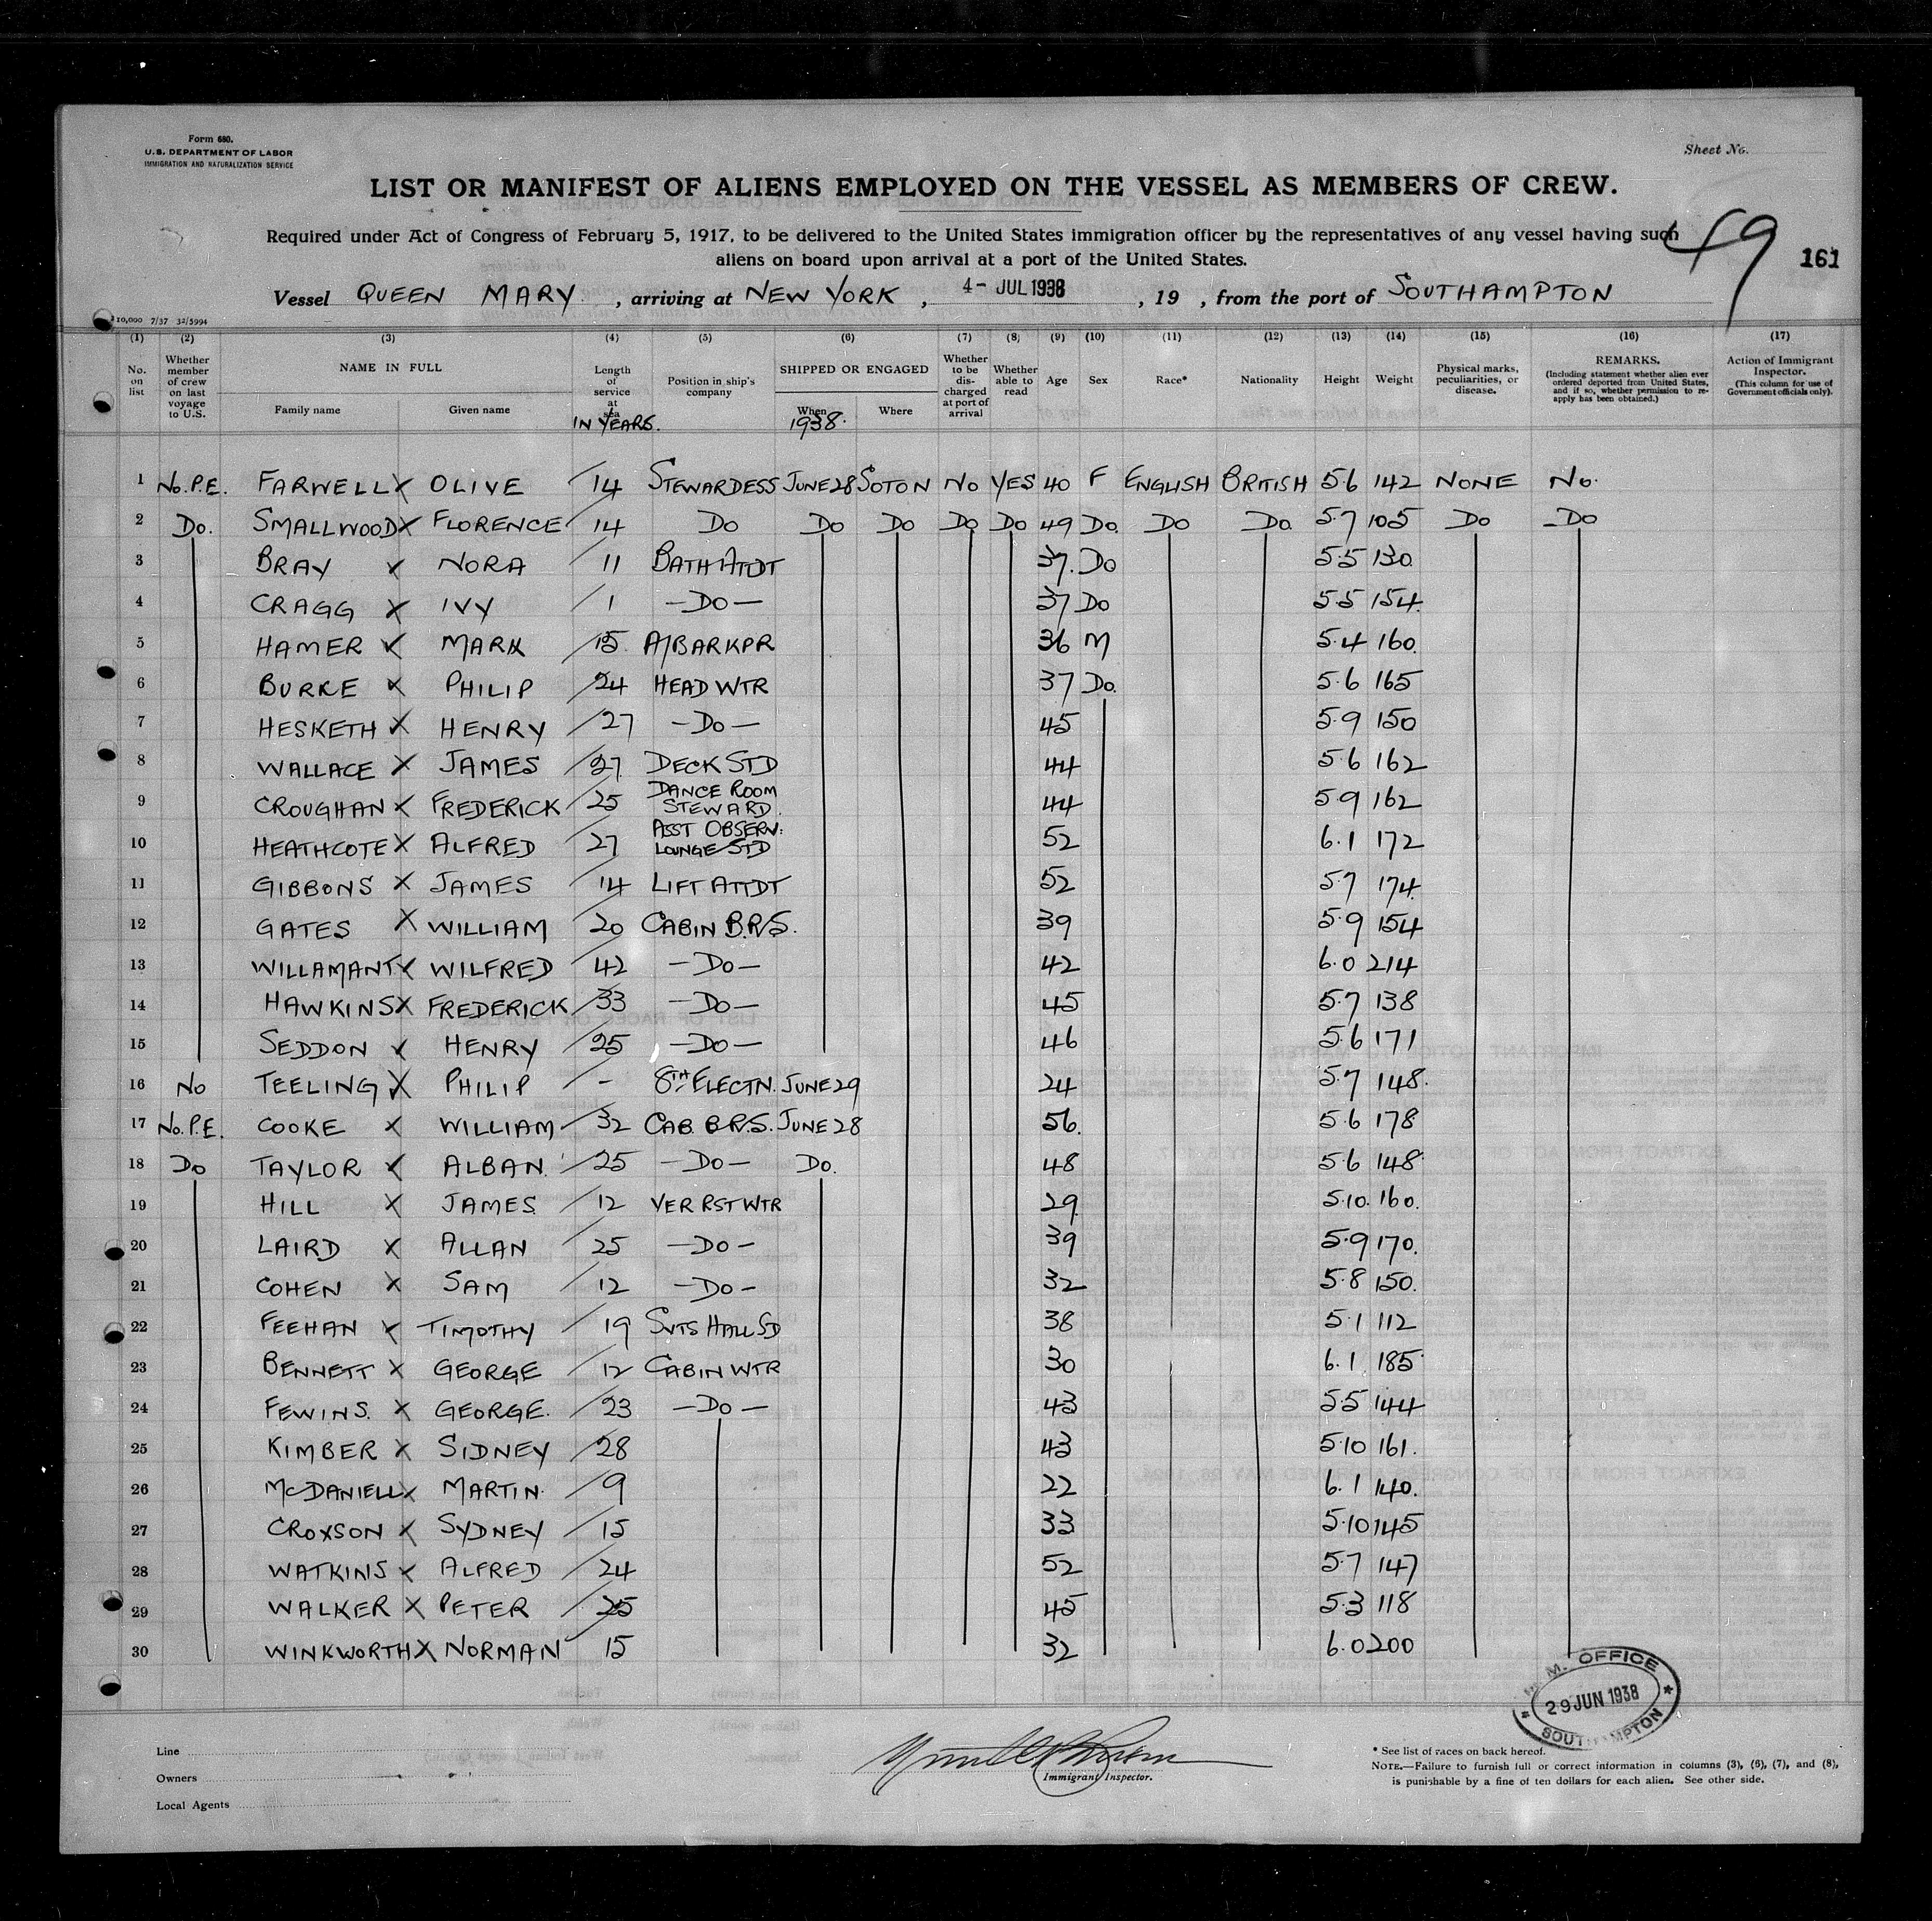 Form 680.
U.S. DEPARTMENT OF LABOR
IMMIGRATION AND NATURALIZATION SERVICE
Sheet No.
LIST OR MANIFEST OF ALIENS EMPLOYED ON THE VESSEL AS MEMBERS OF CREW.
Required under Act of Congress of February 5, 1917, to be delivered to the United States immigration officer by the representatives of any vessel having such
aliens on board upon arrival at a port of the United States.
49
161
Vessel QUEEN MARY, arriving at NEW YORK, 4- JUL 1938, 19 , from the port of SOUTHAMPTON
10,000 7/37 32/5994
(1) (2) (3) (4) (5) (6) (7) (8) (9) (10) (11) (12) (13) (14) (15) (16) (17)
No. on list
Whether member of crew on last voyage to U.S.
NAME IN FULL
Family name Given name
Length of service at sea
IN YEARS.
Position in ship's company
SHIPPED OR ENGAGED
When Where
1938.
Whether to be discharged at port of arrival
Whether able to read
Age Sex Race* Nationality Height Weight
Physical marks, peculiarities, or disease.
REMARKS.
(Including statement whether alien ever ordered deported from United States, and if so, whether permission to re-apply has been obtained.)
Action of Immigrant Inspector.
(This column for use of Government officials only).
1 No. P.E. FARWELL X OLIVE 14 STEWARDESS JUNE 28 SOTON NO YES 40 F ENGLISH BRITISH 5.6 142 NONE No.
2 Do. SMALLWOOD X FLORENCE 14 Do Do Do Do Do 49 Do. Do Do. 5.7 105 Do -Do
3 BRAY X NORA 11 BATH ATDT 37. Do 5.5 130.
4 CRAGG X IVY 1 -Do- 37 Do 5.5 154.
5 HAMER X MARK 15 A/BARKPR 36 M 5.4 160.
6 BURKE X PHILIP 24 HEAD WTR 37 Do. 5.6 165
7 HESKETH X HENRY 27 -Do- 45 5.9 150
8 WALLACE X JAMES 27 DECK STD 44 5.6 162
9 CROUGHAN X FREDERICK 25 DANCE ROOM STEWARD. 44 5.9 162
10 HEATHCOTE X ALFRED 27 ASST OBSERV: LOUNGE STD 52 6.1 172
11 GIBBONS X JAMES 14 LIFT ATTDT 52 5.7 174.
12 GATES X WILLIAM 20 CABIN B.R.S. 39 5.9 154
13 WILLAMANT X WILFRED 42 -Do- 42 6.0 214
14 HAWKINS X FREDERICK 33 -Do- 45 5.7 138
15 SEDDON X HENRY 25 -Do- 46 5.6 171
16 No TEELING X PHILIP - 8TH ELECTN. JUNE 29 24 5.7 148.
17 No. P.E. COOKE X WILLIAM 32 CAB. B.R.S. JUNE 28 56. 5.6 178
18 Do TAYLOR X ALBAN 25 -Do- Do. 48 5.6 148
19 HILL X JAMES 12 VER RST WTR 29. 5.10. 160.
20 LAIRD X ALLAN 25 -Do- 39 5.9 170.
21 COHEN X SAM 12 -Do- 32 5.8 150.
22 FEEHAN X TIMOTHY 19 SVTS HALL SD 38 5.1 112
23 BENNETT X GEORGE 12 CABIN WTR 30 6.1 185
24 FEWINS. X GEORGE. 23 -Do- 43 5.5 144
25 KIMBER X SIDNEY 28 43 5.10 161.
26 McDANIELL X MARTIN. 9 22 6.1 140.
27 CROXSON X SYDNEY 15 33 5.10 145
28 WATKINS X ALFRED 24 52 5.7 147
29 WALKER X PETER 25 45 5.3 118
30 WINKWORTH X NORMAN 15 32 6.0 200
M. OFFICE
29 JUN 1938
SOUTHAMPTON
Line
Owners
Local Agents
Immigrant Inspector.
* See list of races on back hereof.
NOTE.—Failure to furnish full or correct information in columns (3), (6), (7), and (8),
is punishable by a fine of ten dollars for each alien. See other side.